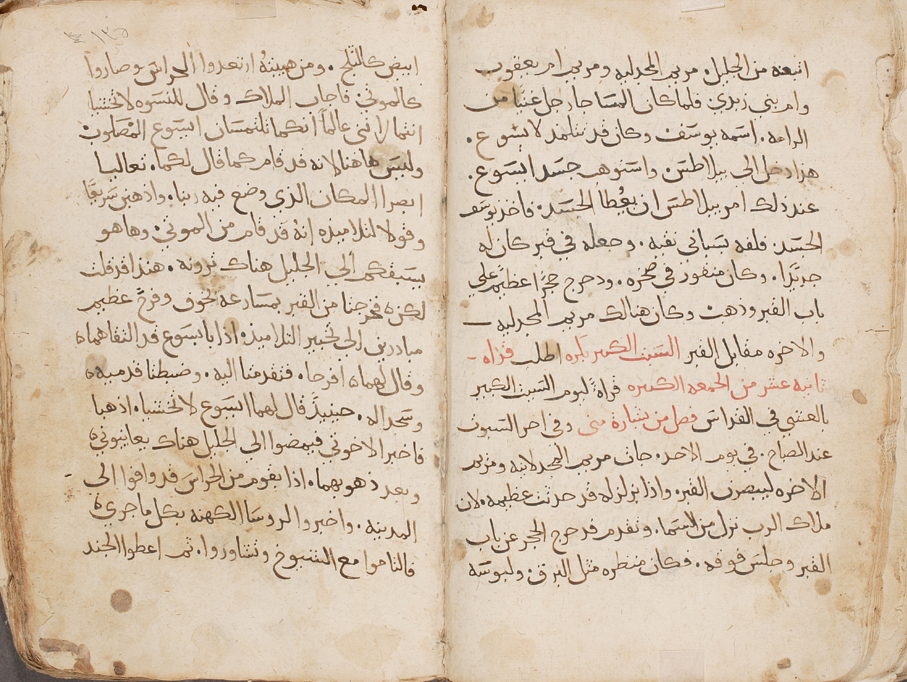 اتبعه من الجليل. مريم المجدليه ومريم ام يعقوب
وام بني زبدي فلما كان المسا جا رجل غنيا من
الرامه. اسمه يوسف وكان قد تتلمد لايسوع.
هذا دخل الى بيلاطس واستوهب جسد ايسوع.
عند ذلك امر بيلاطس ان يعطا الجسد. فاخد يوسف
الجسد فلفه سبانى نقيه. وجعله في قبر كان له
جديدًا. وكان منقور في صخره. ودحرج حجرًا عظيم على
باب القبر وذهب وكان هنالك مريم المجدليه
والاخره مقابل القبر السبت الكبير اطلب قراه
ثانيه عشر من الجمعه الكبيره قراة ليوم السبت الكبير
بالعشي في القداس فصل من بشارة متى وفي اخر السبوت
عند الصباح. في يوم الاحد. جات مريم المجدلانيه ومريم
الاخره ليبصرن القبر. واذا بزلزله قد حدثت عظيمه. لان
ملاك الرب نزل من السما. وتقدم فدحرج الحجر عن باب
القبر وجلس فوقه. وكان منظره مثل البرق ولبوسه
ابيض كالثلج. ومن هيبته ارتعدوا الحراس وصاروا
كالموتى فاجاب الملاك وقال للنسوه لا تخشيا
انتما لانني عالمًا انكما تلتمسان ايسوع المصلوب
وليس هاهنا لانه قد قام كما قال لكما. تعاليا
ابصرا المكان الذي وضع فيه ربنا. واذهبن سريعًا
وقولا لتلاميذه انه قد قام من الموتى. وها هو
يسبقكم الى الجليل هناك ترونه. هنذا قد قلت
لكن فخرجنا من القبر بمسارعه لخوف وفرح عظيم
مبادرين الى تخبير التلاميذ واذا بايسوع قد التقاهما
وقال لهما افرحا. فتقدمنا اليه. وضبطتا قدميه
وسجدا له. حينيذ قال لهما ايسوع لا تخشيا. اذهبا
فاخبرا لاخوتي فيمضوا الى الجليل هناك يعاينوني
وبعد ذهوبهما. اذا بقوم من الحراس قد وافوا الى
المدينه. واخبروا لروسا الكهنه بكل ما جرى
فالتاموا مع الشيوخ وتشاوروا. ثم اعطوا الجند